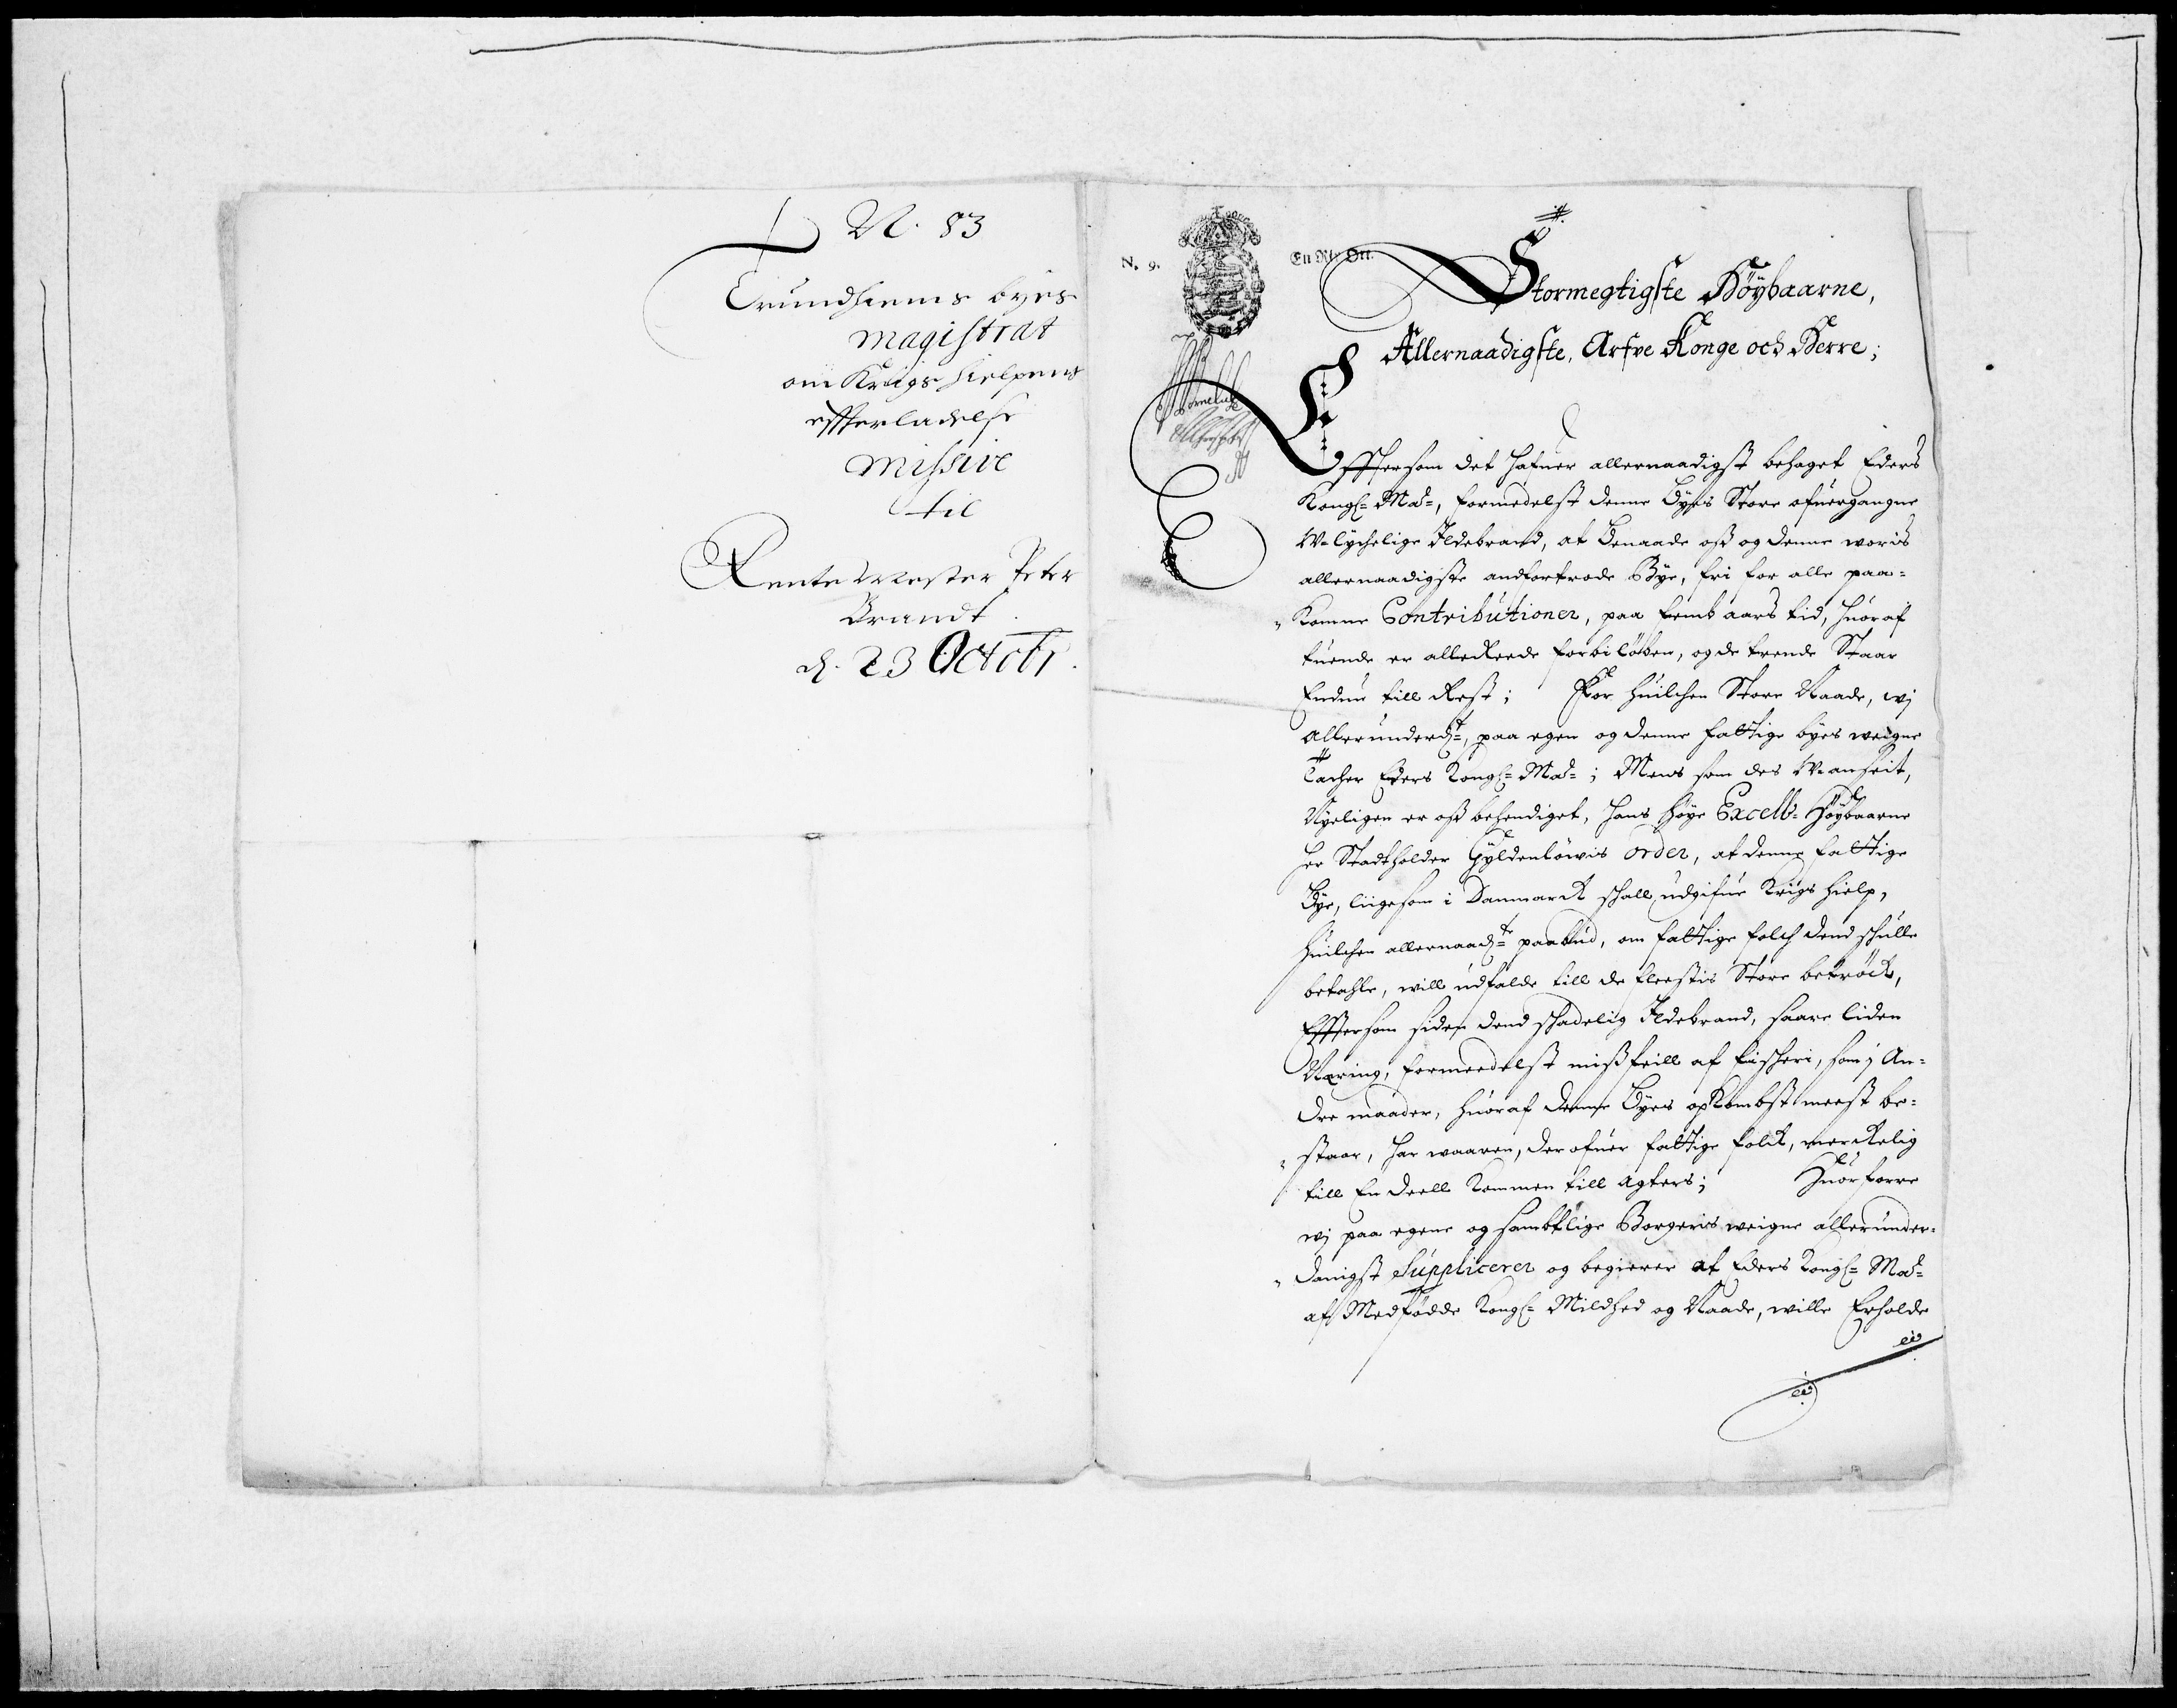 N. 83
Trundhiems byes
magistrat
om Krigs hielpens
effterladelse
missive
til
Rente Mester Peter
Brandt.
d. 23 Octobr.
N. 9.
En Rix Ort.
Stormegtigste Höybaarne,
Allernaadigste, Arfve Konge och Herre;
Efftersom det hafuer allernaadigst behaget Eders
Kongl= May=, formedelst denne Byes Store ofuergangne
W-lychelige Ildebrand, at benaade oß og denne woris
allernaadigste andfortrode Bye, fri for alle paa=
Komne Contributioner, paa femb aars tid, huoraf
tuende er allereede forbiløben, og de trende Staar
Endnu till Rest; For huilchen Store Naade, wj
allerunderd=, paa egen og denne fattige byes weigne
tacher Eders Kongl= May=; Mens som des W-anseit,
Nyeligen er oß behendiget, hans høye Excell= Höybaarne
her Stadtholder Gyldenlöwis order, at denne fattige
Bye, liigesom i Danmarck schall udgifue Krigs hielp,
huilchen allernaad=te paabud, om fattige folch dend schulle
betahle, will udfalde till de fleestis Store betröck,
Efftersom siden dend schadelig Ildebrand, saare liden
Næring, formeedelst mißfeill af fischeri, som j An=
dre maader, huoraf denne Byes opKombst meest be=
staar, har waaren, der ofuer fattige folck, merckelig
till En deell Kommen till agters; Huorforre
wj paa egene og sambtlige Borgeris weigne allerunder=
danigst Supplicerer og begierer at Eders Kongl= May=
aff Medfödde Kongl= Mildhed og Naade, wille Erholde